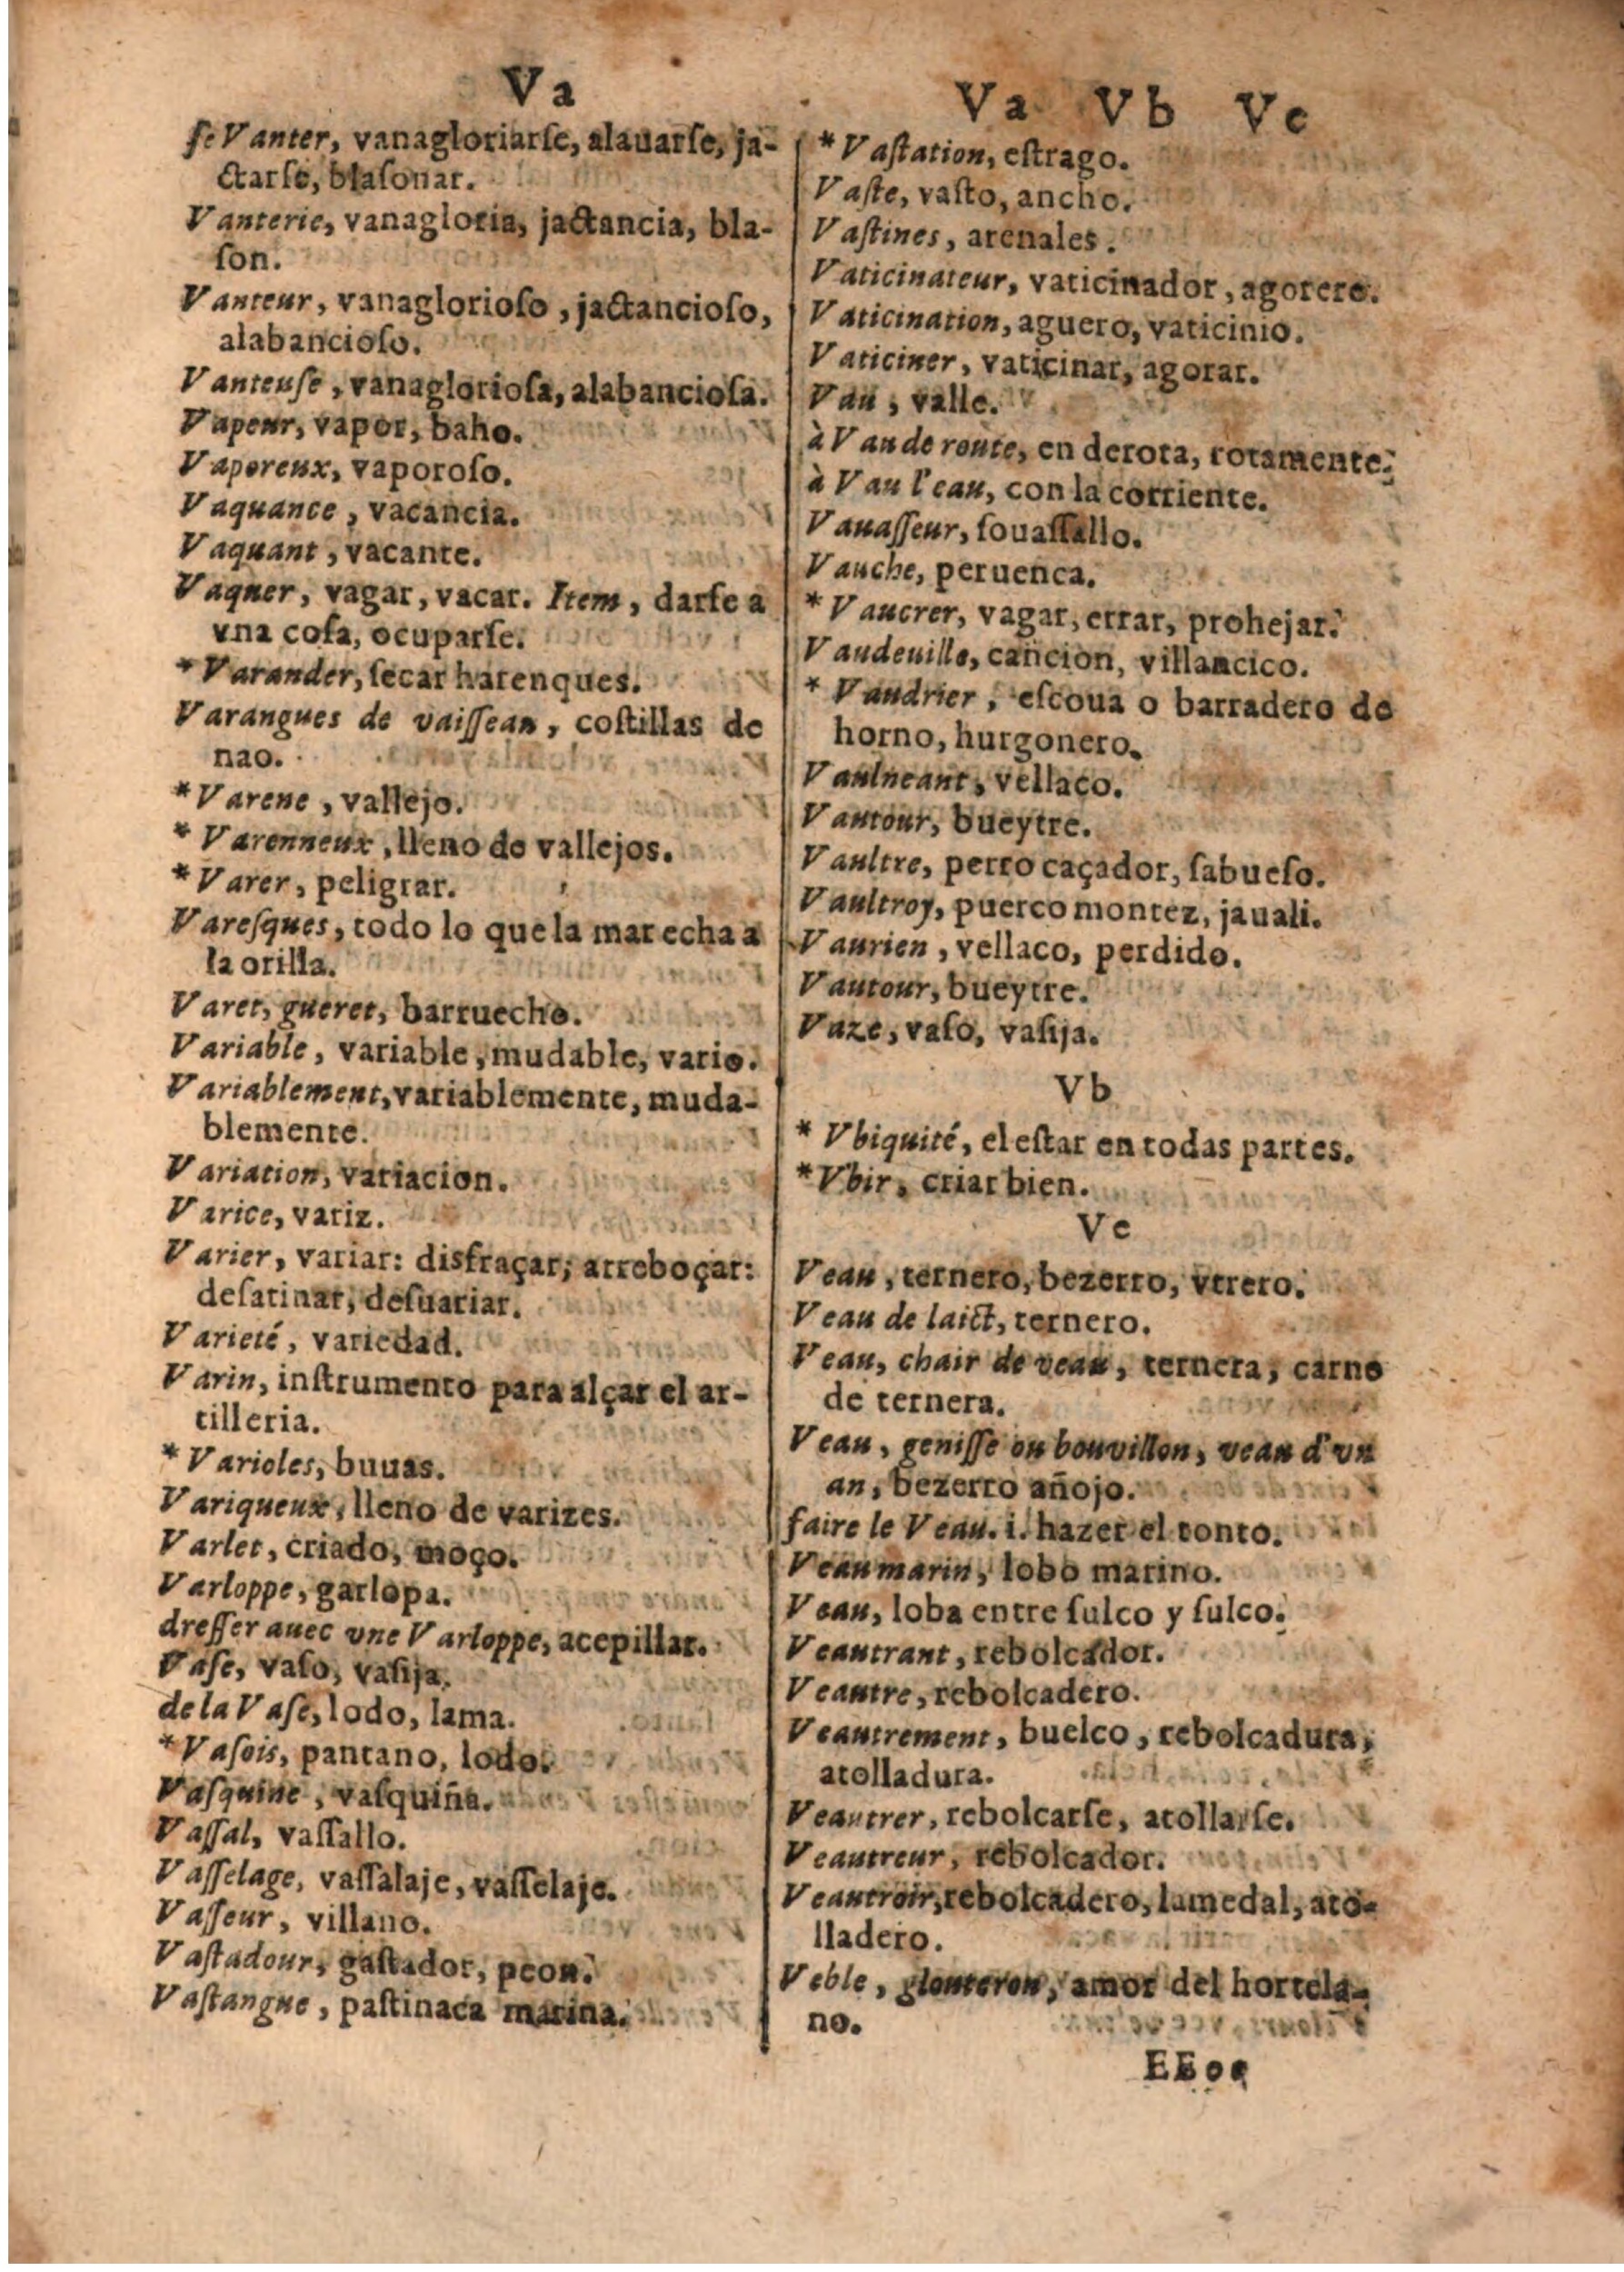 Va
ſe Vanter, vanagloriarſe, alauarſe, ja-
ctarſe, blaſonar.
Vanterie, vanagloria, jactancia, bla-
ſon.
Vanteur, vanaglorioſo, jactancioſo,
alabancioſo.
Vanteuſe, vanaglorioſa, alabancioſa.
Vapeur, vapor, baho.
Vaporeux, vaporoſo.
Vaquance, vacancia.
Vaquant, vacante.
Vaquer, vagar, vacar. Item, darſe a
vna coſa, ocuparſe.
* Varander, ſecar harenques.
Varangues de vaiſſeau, coſtillas de
nao.
* Varene, vallejo.
* Varenneux, lleno de vallejos.
* Varer, peligrar.
Vareſques, todo lo que la mar echa a
la orilla.
Varet, gueret, barruecho.
Variable, variable, mudable, vario.
Variablement, variablemente, muda-
blemente.
Variation, variacion.
Varice, variz.
Varier, variar: disfraçar, arreboçar:
deſatinar, deſuariar.
Varieté, variedad.
Varin, inſtrumento para alçar el ar-
tilleria.
* Varioles, buuas.
Variqueux, lleno de varizes.
Varlet, criado, moço.
Varloppe, garlopa.
dreſſer auec vne Varloppe, acepillar.
Vaſe, vaſo, vaſija.
de la Vaſe, lodo, lama.
* Vaſois, pantano, lodo.
Vaſquine, vaſquiña.
Vaſſal, vaſſallo.
Vaſſelage, vaſſalaje, vaſſelaje.
Vaſſeur, villano.
Vaſtadour, gaſtador, peon.
Vaſtangue, paſtinaca marina.
Va Vb Ve
* Vaſtation, eſtrago.
Vaſte, vaſto, ancho.
Vaſtines, arenales.
Vaticinateur, vaticinador, agorero.
Vaticination, aguero, vaticinio.
Vaticiner, vaticinar, agorar.
Vau, valle.
à Vau de route, en derota, rotamente.
à Vau l'eau, con la corriente.
Vauaſſeur, ſouaſſallo.
Vauche, peruenca.
* Vaucrer, vagar, errar, prohejar.
Vaudeuille, cancion, villancico.
* Vaudrier, eſcoua o barradero de
horno, hurgonero.
Vaulneant, vellaco.
Vautour, bueytre.
Vaultre, perro caçador, ſabueſo.
Vaultroy, puerco montez, jauali.
Vaurien, vellaco, perdido.
Vautour, bueytre.
Vaze, vaſo, vaſija.
Vb
* Vbiquité, el eſtar en todas partes.
* Vbir, criar bien.
Ve
Veau, ternero, bezerro, vtrero.
Veau de laict, ternero.
Veau, chair de veau, ternera, carne
de ternera.
Veau, geniſſe ou bouvillon, veau d'vn
an, bezerro añojo.
faire le Veau. i. hazer el tonto.
Veau marin, lobo marino.
Veau, loba entre ſulco y ſulco.
Veautrant, rebolcador.
Veautre, rebolcadero.
Veautrement, buelco, rebolcadura,
atolladura.
Veautrer, rebolcarſe, atollarſe.
Veautreur, rebolcador.
Veautroir, rebolcadero, lamedal, ato-
lladero.
Veble, glouteron, amor del hortela-
no.
EEee